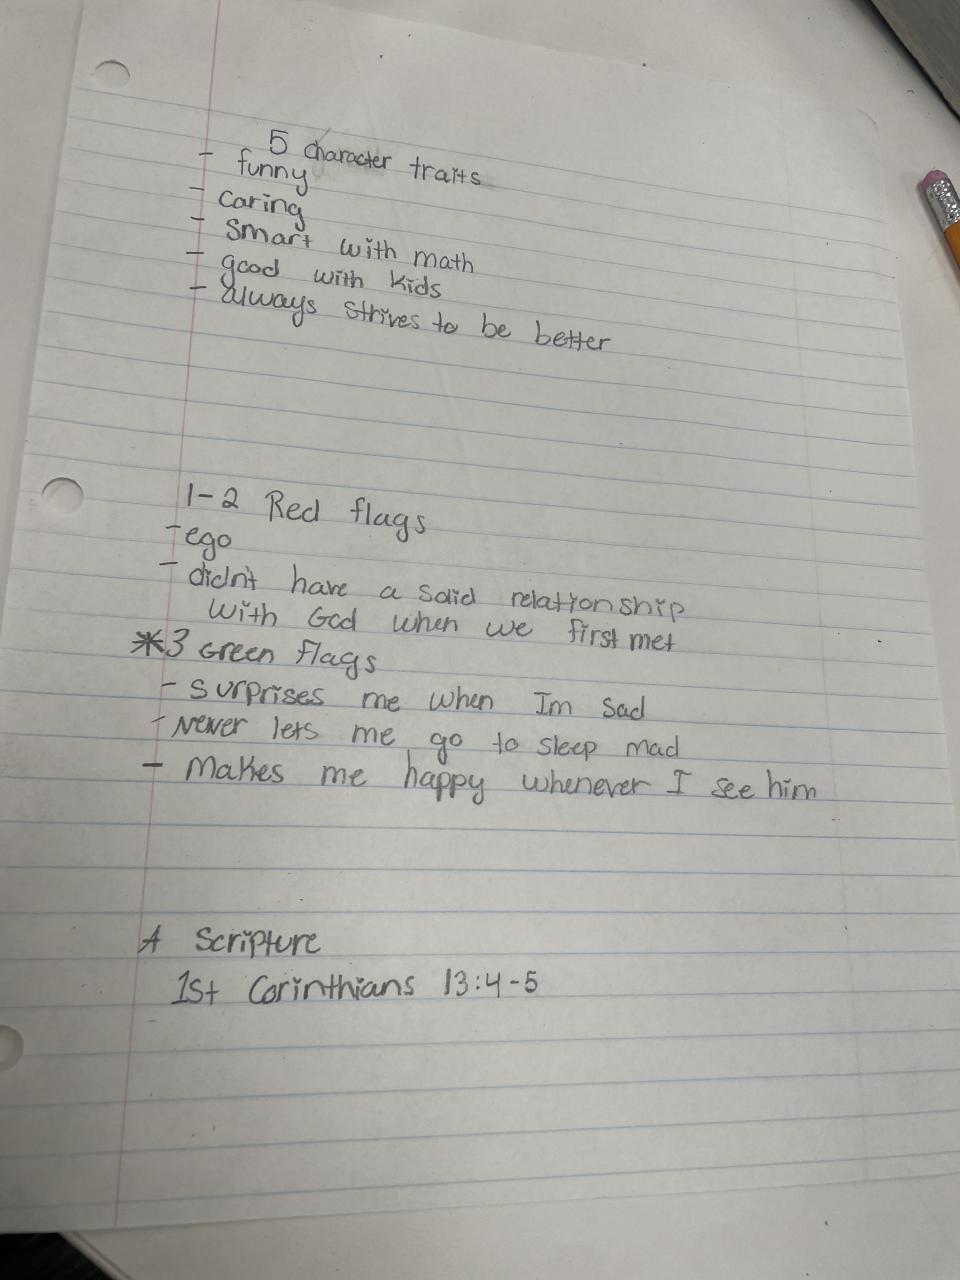 5 character traits
- funny
- caring
- smart with math
- good with kids
- always strives to be better
1-2 Red flags
- ego
- didn't have a solid relationship
with God when we first met
*3 Green flags
- surprises me when Im sad
- Never lets me go to sleep mad
- makes me happy whenever I see him
A Scripture
1st Corinthians 13:4-5